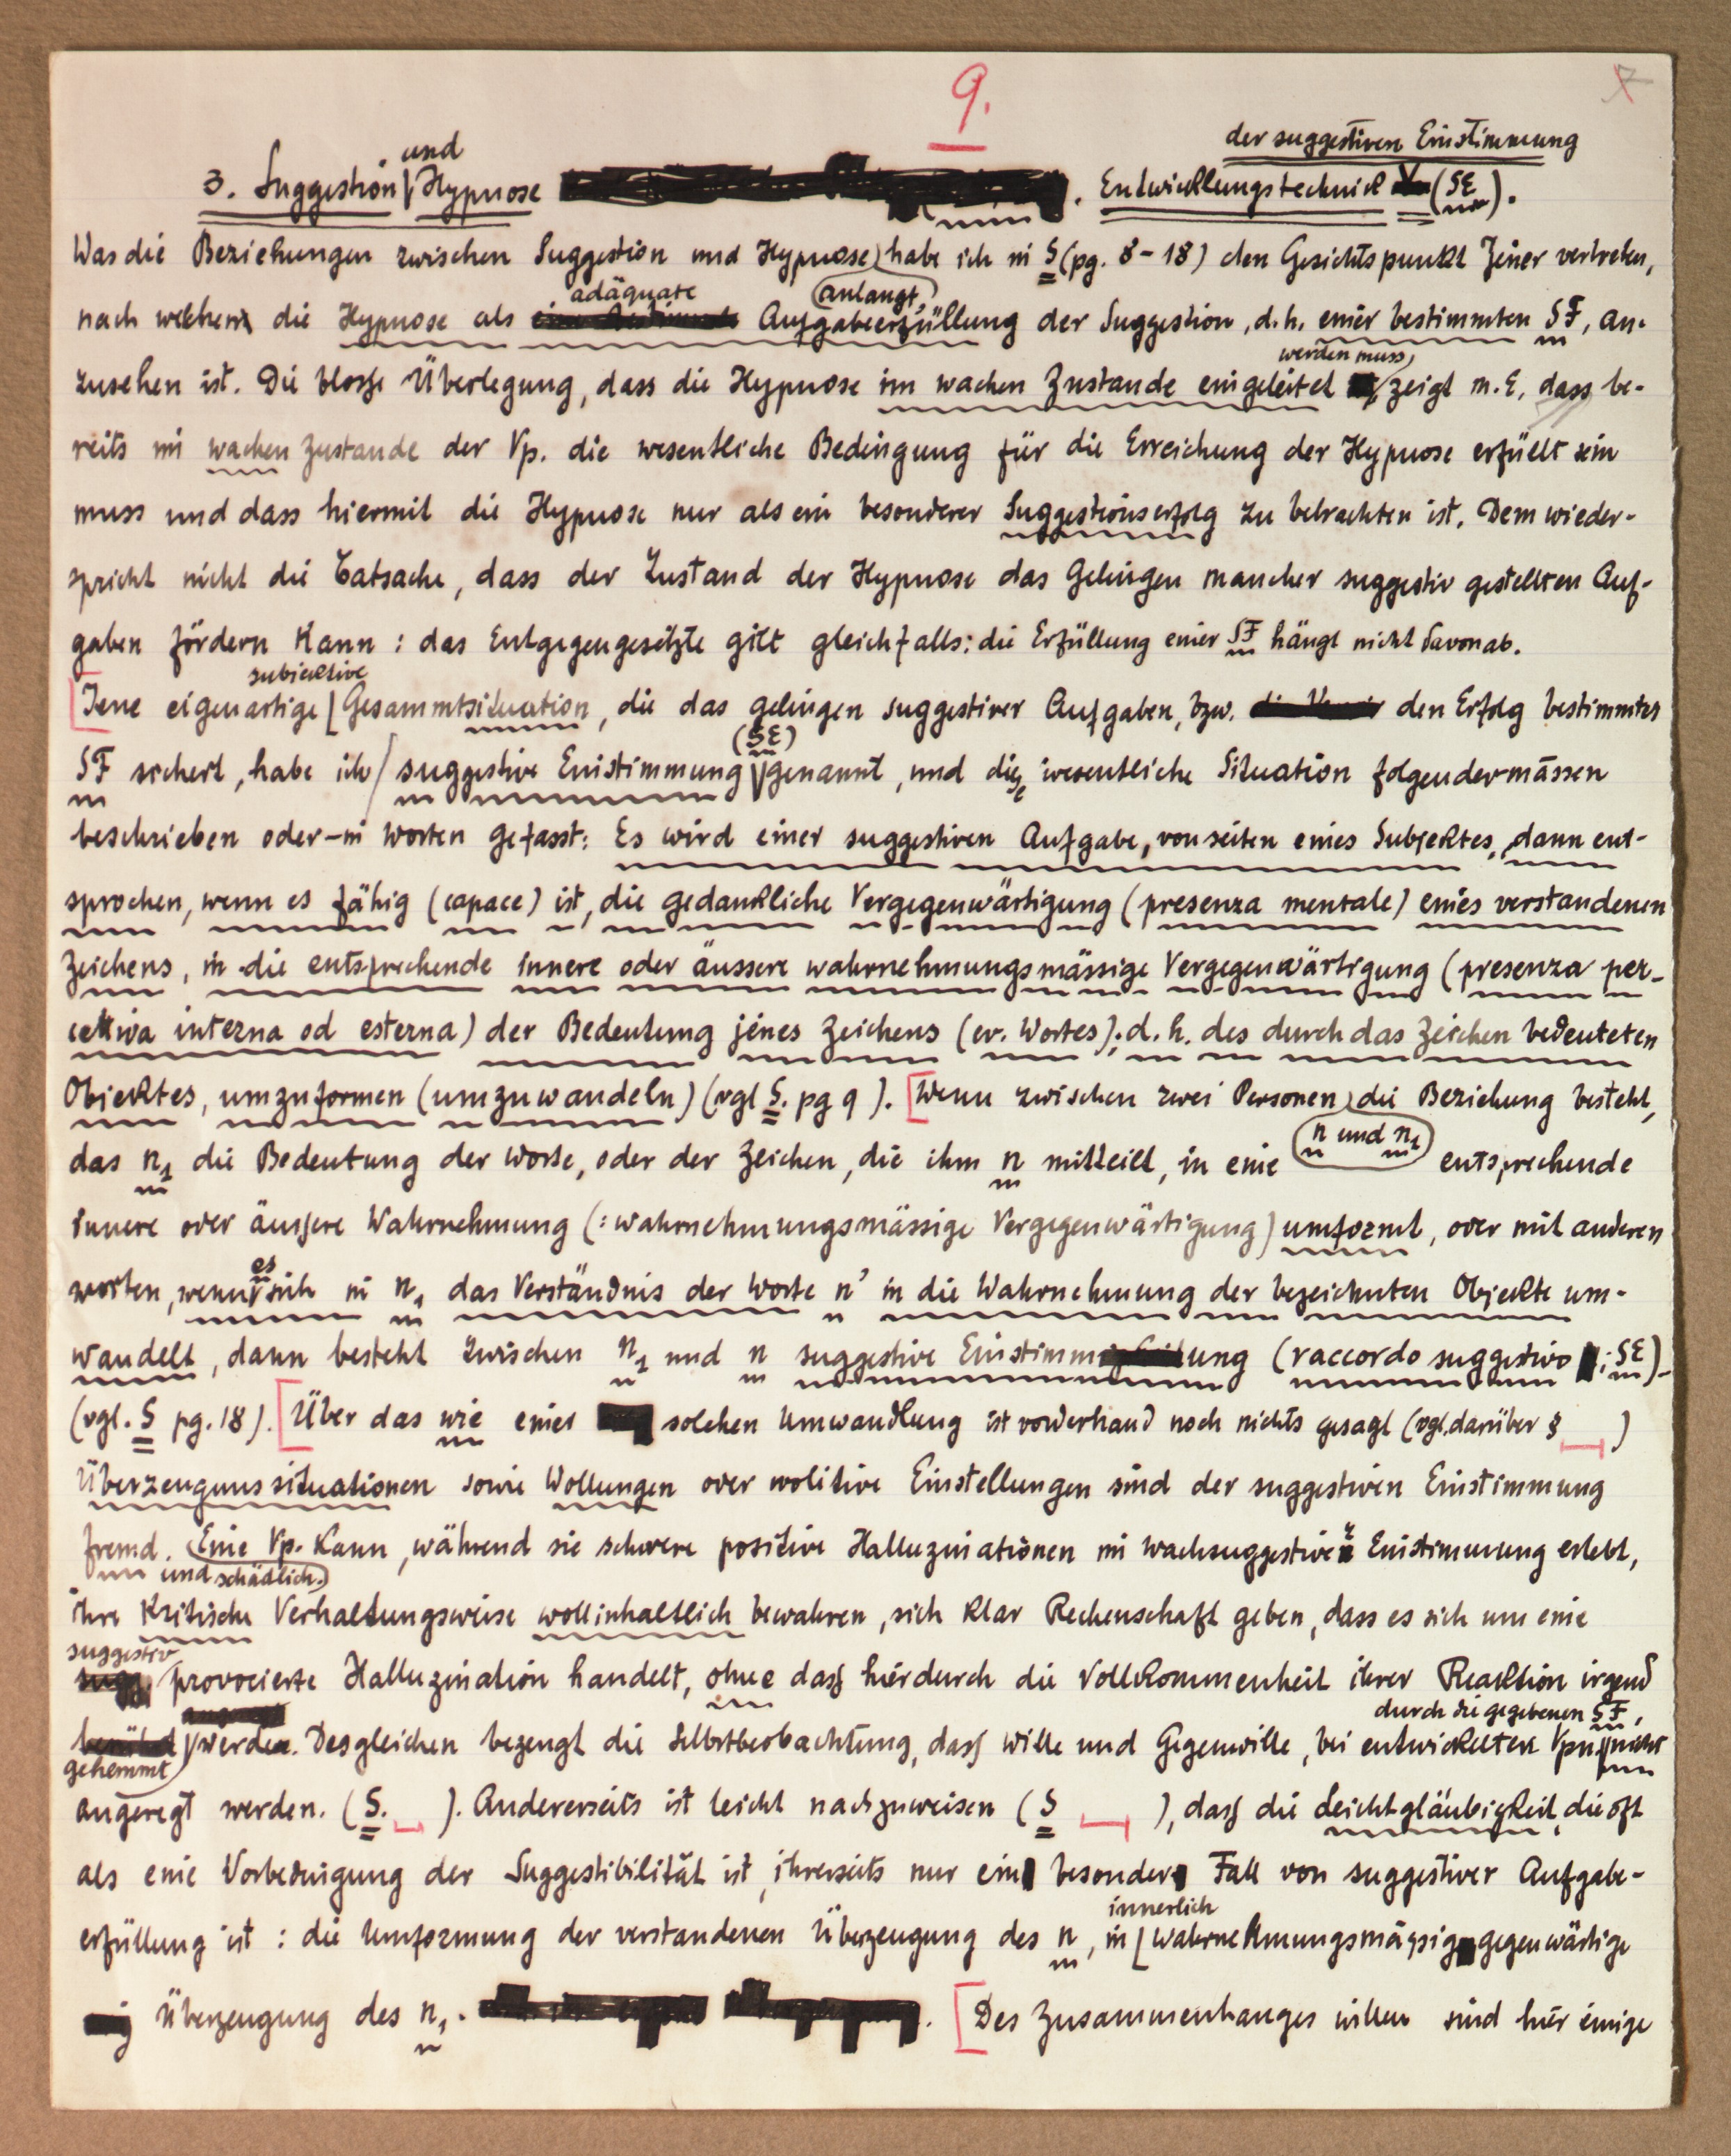 9.
7
der suggestiven Einstimmung
und
3. Suggestion Hypnose . Entwicklungstechnick (SE).
Was die Beziehungen zwischen Suggestion und Hypnose habe ich in S (pg. 8-18) den Gesichtspunkt Jener vertreten,
adäquate anlangt,
nach welchen die Hypnose als Aufgabeerfüllung der Suggestion, d.h. einer bestimmten SF, an-
werden muss,
zusehen ist. Die blosse Überlegung, dass die Hypnose im wachen Zustande eingeleitet zeigt m.E, dass be-
reits im wachen Zustande der Vp. die wesentliche Bedingung für die Erreichung der Hypnose erfüllt sein
muss und dass hiermit die Hypnose nur als ein besonderer Suggestionserfolg zu betrachten ist. Dem wieder-
spricht nicht die Tatsache, dass der Zustand der Hypnose das Gelingen mancher suggestiv gestellten Auf-
gaben fördern kann: das Entgegengesetzte gilt gleichfalls: die Erfüllung einer SF hängt nicht davon ab.
subjektive
[Jene eigenartige Gesammtsituation, die das gelingen suggestiver Aufgaben, bzw. den Erfolg bestimmter
(SE)
SF sichert, habe ich suggestive Einstimmung genannt, und diese wesentliche Situation folgendermässen
beschrieben oder-in Worten gefasst: Es wird einer suggestiven Aufgabe, von seiten eines Subjektes, dann ent-
sprochen, wenn es fähig (capace) ist, die gedankliche Vergegenwärtigung (presenza mentale) eines verstandenen
Zeichens, in die entsprechende innere oder äussere wahrnehmungsmässige Vergegenwärtigung (presenza per-
cettiva interna od esterna) der Bedeutung jenes Zeichens (ev. Wortes); d.h. des durch das Zeichen bedeuteten
Objektes, umzuformen (umzuwandeln) (vgl S. pg 9). [Wenn zwischen zwei Personen die Beziehung besteht,
n und n1
das n1 die Bedeutung der Worte, oder der Zeichen, die ihm n mitteilt, in eine entsprechende
innere oder äussere Wahrnehmung (: wahrnehmungsmässige Vergegenwärtigung) umformt, oder mit anderen
es
worten, wenn sich in n1 das Verständnis der Worte n' in die Wahrnehmung der bezeichneten Objekte um-
wandelt, dann besteht zwischen n1 und n suggestive Einstimmung (raccordo suggestivo ; SE)-
(vgl. S pg. 18). [Über das wie einer solchen Umwandlung ist vorderhand noch nichts gesagt (vgl. darüber § )
Überzeugunssituationen sowie Wollungen oder volitive Einstellungen sind der suggestiven Einstimmung
fremd. Eine Vp. kann, während sie schwere positive Halluzinationen in wachsuggestiver Einstimmung erlebt,
und schädlich.
ihre kritische Verhaltungsweise vollinhaltlich bewahren, sich klar Rechenschaft geben, dass es sich um eine
suggestiv
provocierte Halluzination handelt, ohne dass hierdurch die Vollkommenheit ihrer Reaktion irgend
durch die gegebenen SF,
werde. Desgleichen bezeugt die Selbstbeobachtung, dass Wille und Gegenwille, bei entwickelten Vpn nicht
gehemmt
angeregt werden. (S. ). Andererseits ist leicht nachzuweisen (S ), dass die Leichtgläubigkeit, die oft
als eine Vorbedingung der Suggestibilität ist, ihrerseits nur ein besonder Fall von suggestiver Aufgabe-
innerlich
erfüllung ist: die Umformung der verstandenen Überzeugung des n, in wahrnehmungsmässig gegenwärtige
Überzeugung des n1. . [Des Zusammenhanges willen sind hier einige